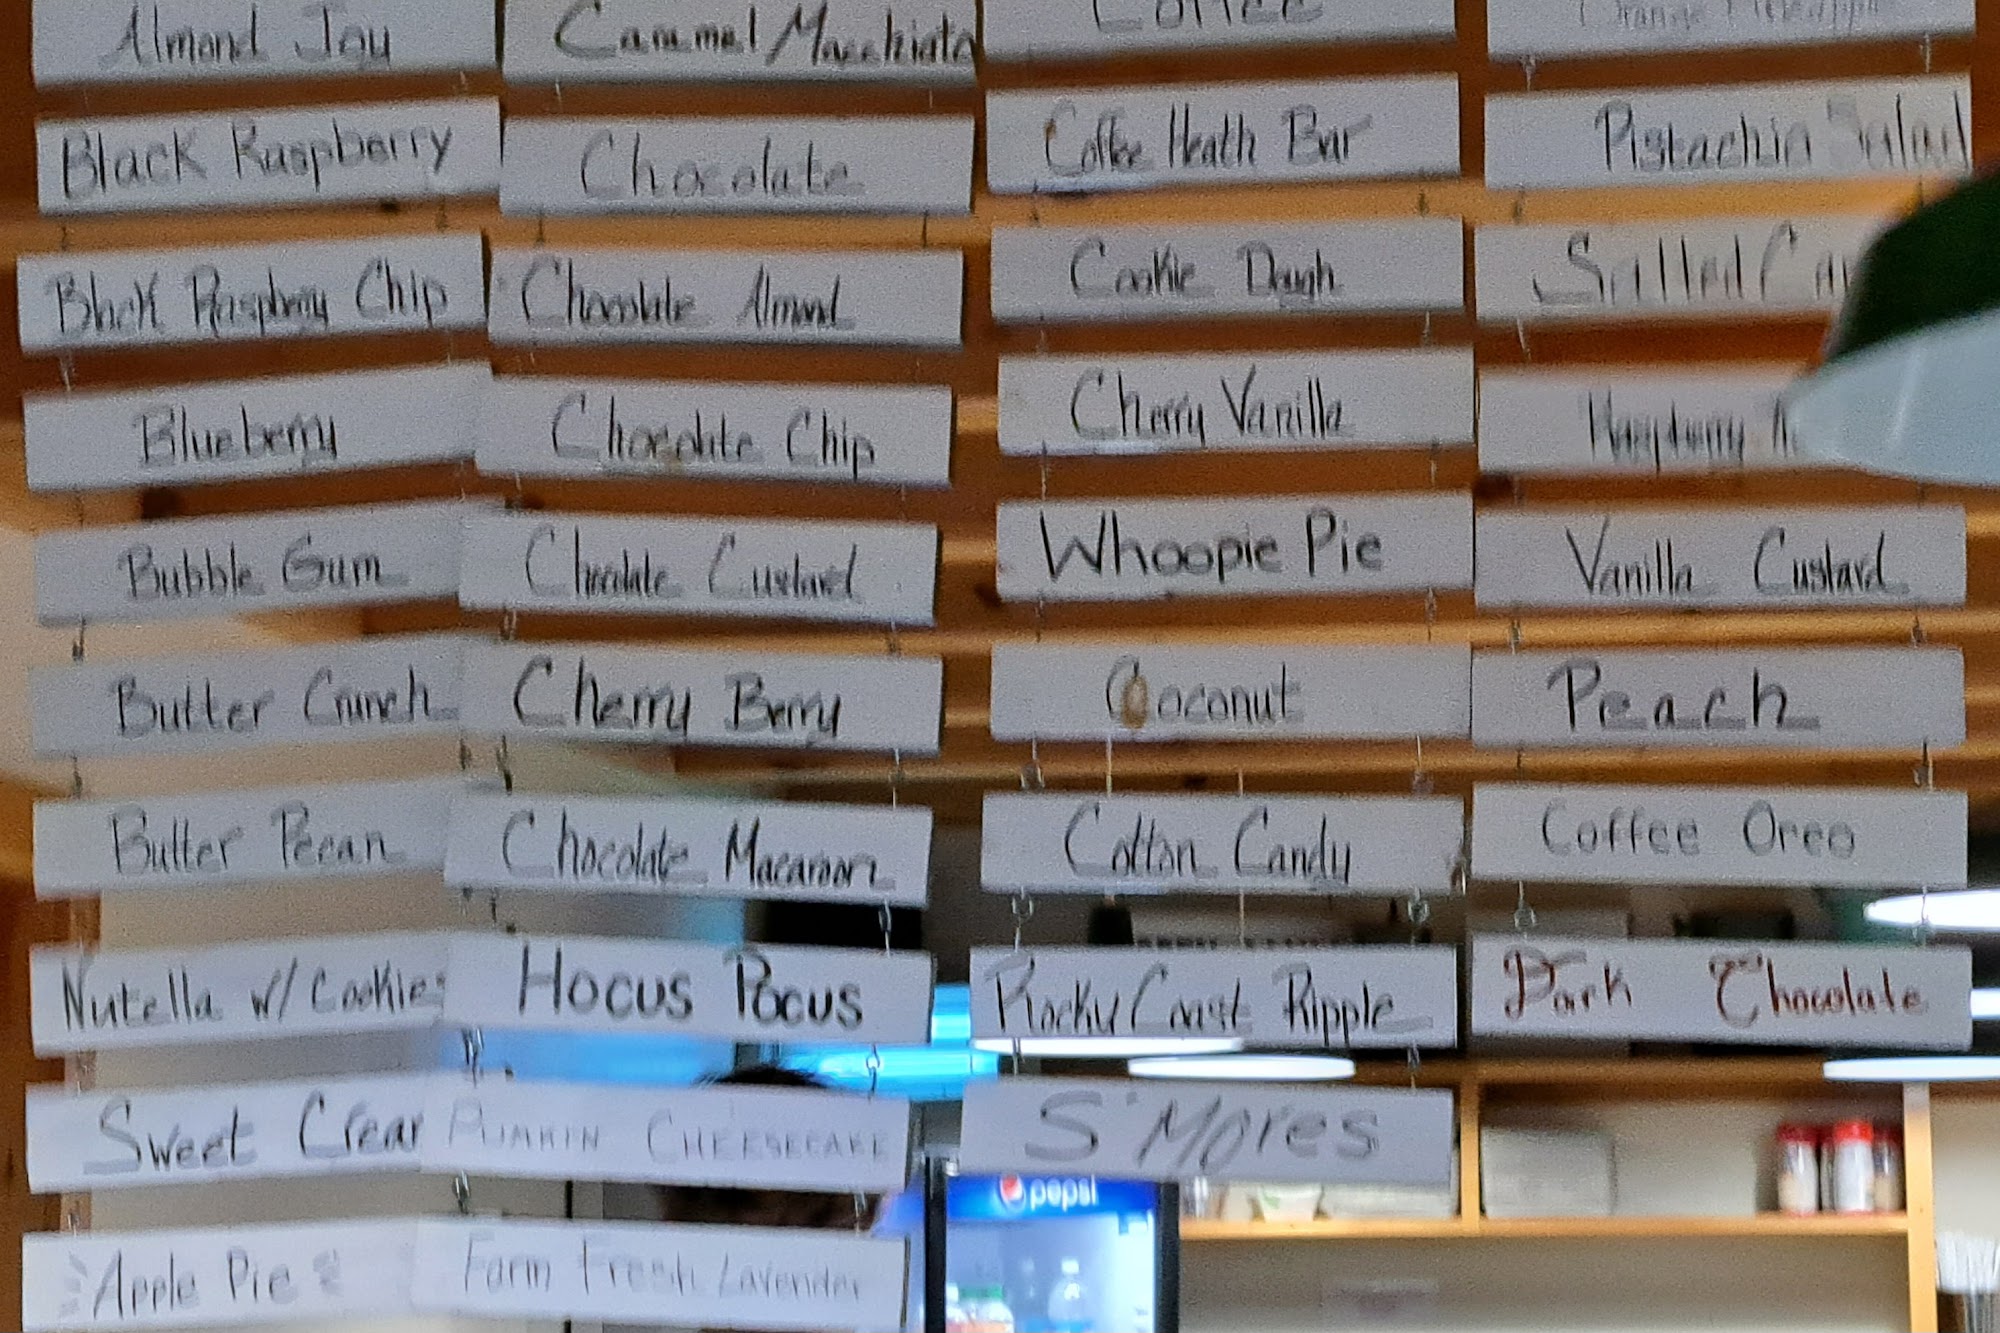 Almond Joy
Black Raspberry
Black Raspberry Chip
Blueberry
Bubble Gum
Butter Crunch
Butter Pecan
Nutella w/ Cookies
Sweet Crear
Apple Pie
Caramel Macchiato
Chocolate
Chocolate Almond
Chocolate Chip
Chocolate Custard
Cherry Berry
Chocolate Macaroon
Hocus Pocus
Pumkin Cheesecake
Farm Fresh Lavender
Coffee
Coffee Heath Bar
Cookie Dough
Cherry Vanilla
Whoopie Pie
Coconut
Cotton Candy
Rocky Coast Ripple
S'Mores
pepsi
Orange Pineapple
Pistachio Salad
Salted Car
Raspberry
Vanilla Custard
Peach
Coffee Oreo
Dark Chocolate